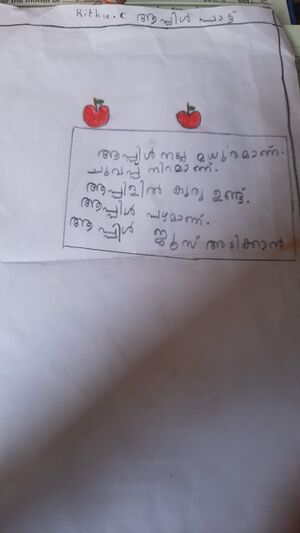 Rithu.C ആപ്പിൾ പാട്ട്
ആപ്പിൾ നല്ല മധുരമാണ്.
ചുവപ്പ് നിറമാണ്.
ആപ്പിളിൽ കുരു ഉണ്ട്.
ആപ്പിൾ പഴമാണ്.
ആപ്പിൾ ജൂസ് അടിക്കാൻ